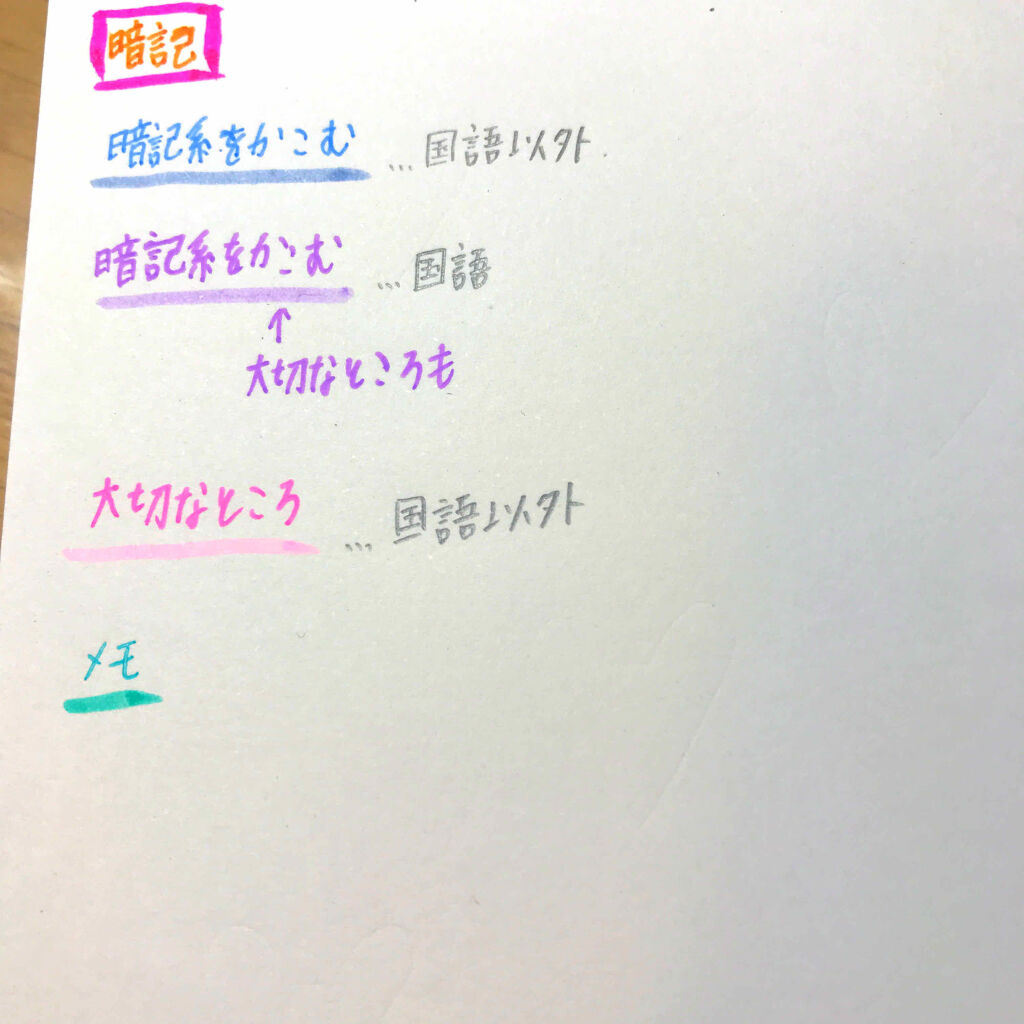 暗記
暗記系をかこむ …国語以外
暗記系をかこむ …国語
↑
大切なところも
大切なところ …国語以外
メモ